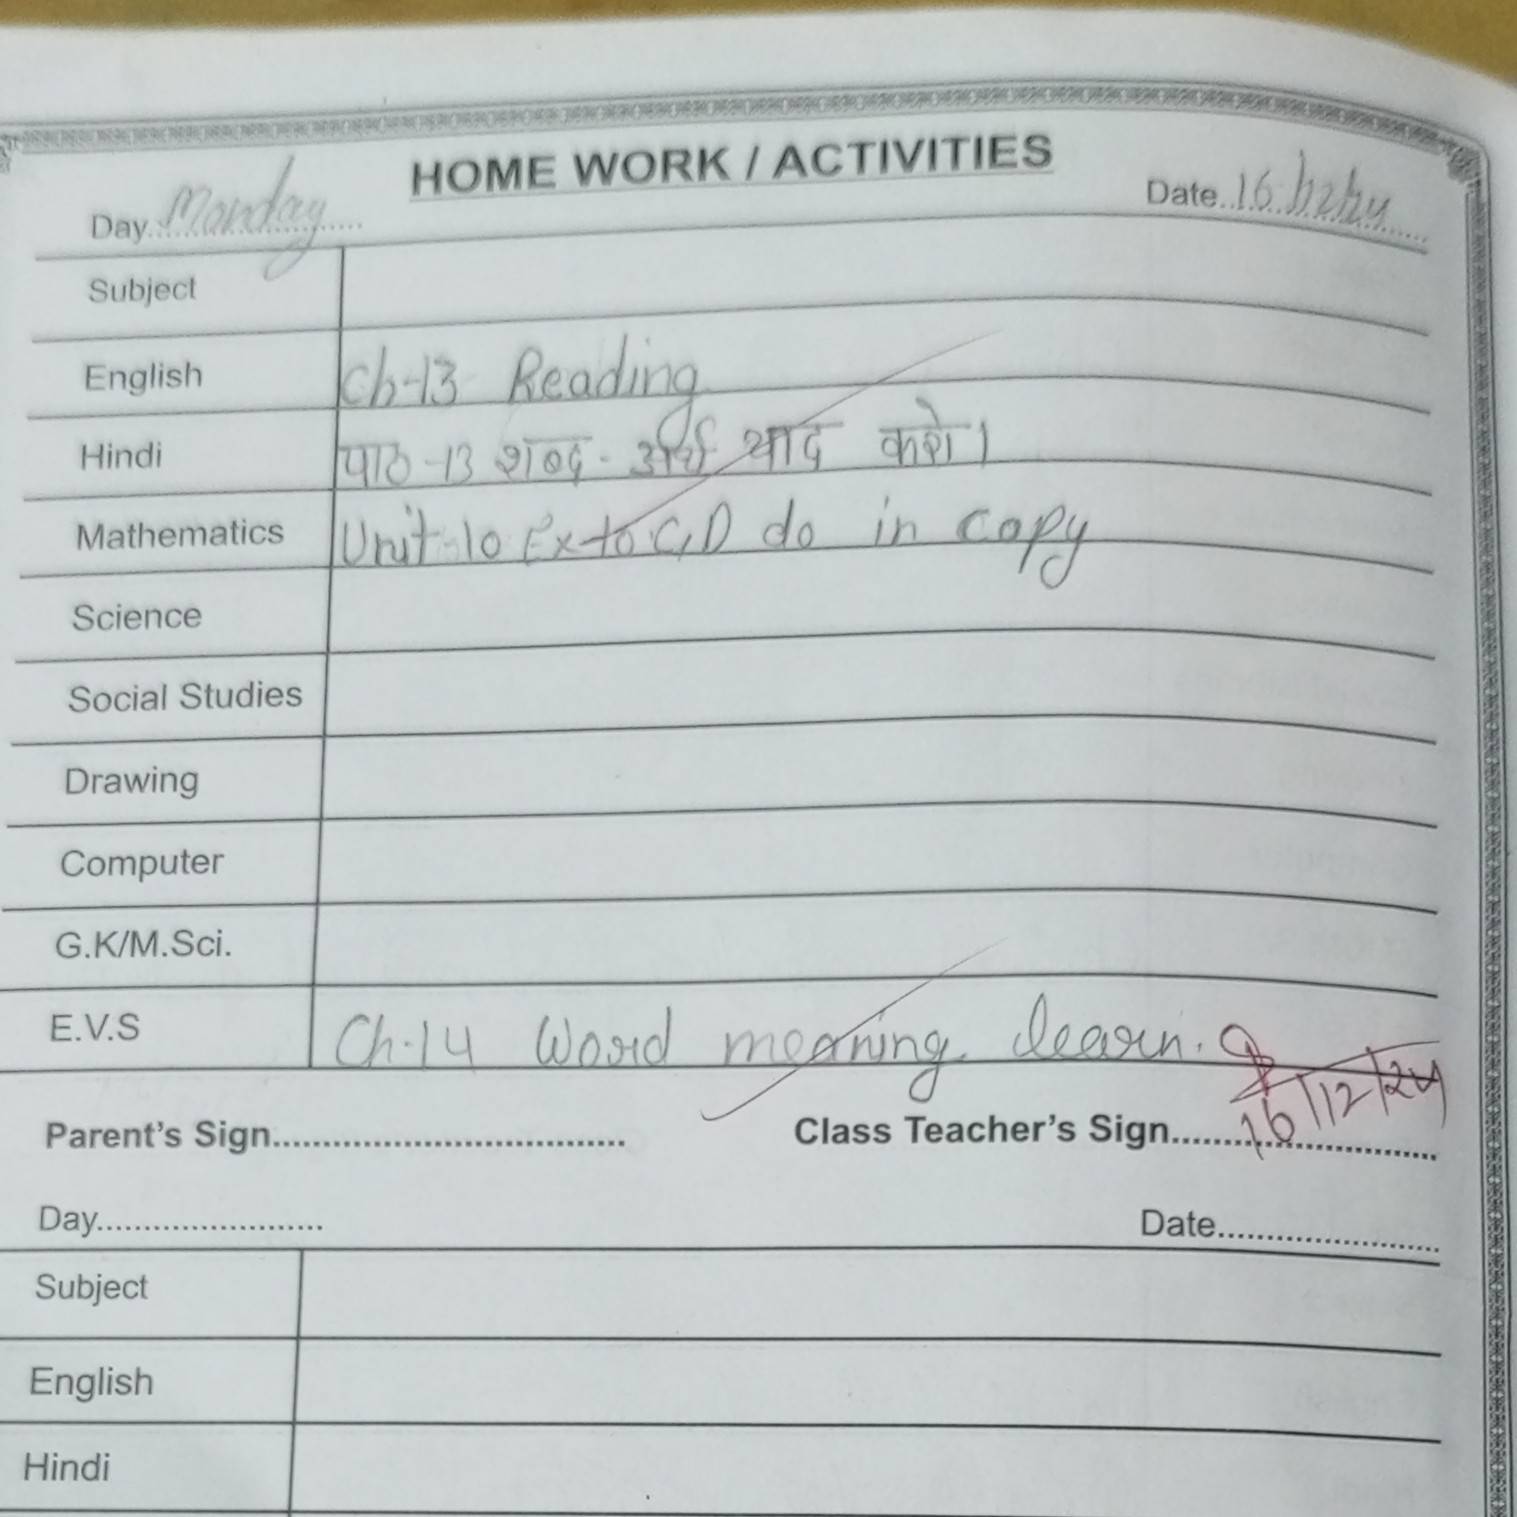 HOME WORK / ACTIVITIES
Day Monday Date 16/12/24
Subject
English Ch-13 Reading
Hindi पाठ -13 शब्द - अर्थ याद करो।
Mathematics Unit-10 Ex-10 C,D do in copy
Science
Social Studies
Drawing
Computer
G.K/M.Sci.
E.V.S Ch-14 Word meaning learn.
Parent's Sign Class Teacher's Sign 16/12/24
Day Date
Subject
English
Hindi